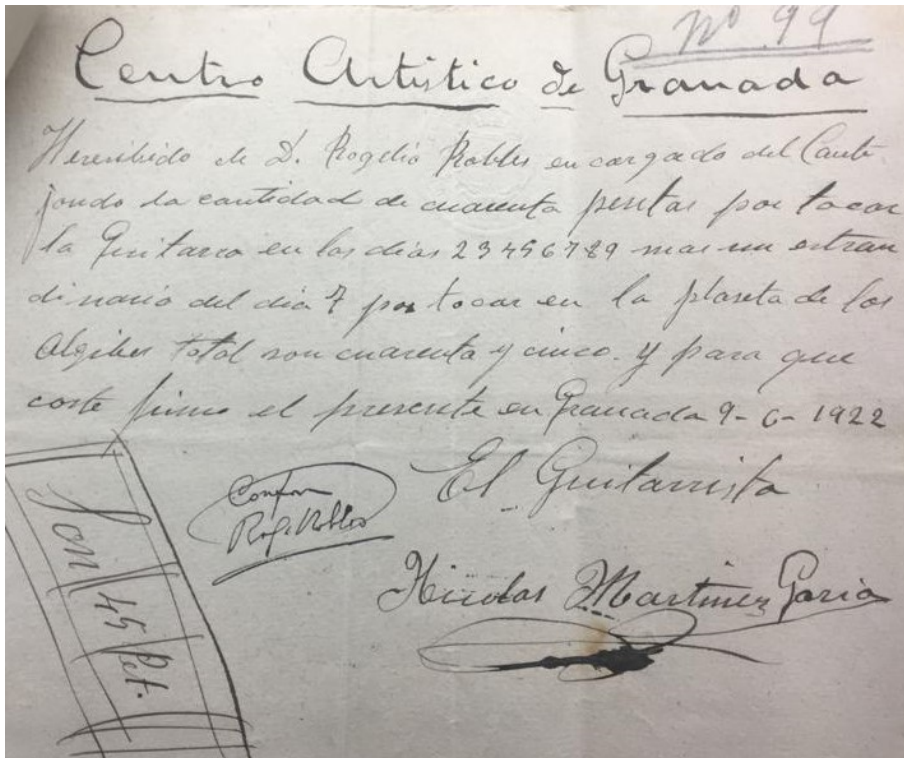 Nº 99
Centro Artístico de Granada
He resibido de D. Rogelio Robles encargado del Cante
jondo la cantidad de cuarenta pesetas por tocar
la Guitarra en los dias 2 3 4 5 6 7 8 9 mas un estraor
dinario del dia 7 por tocar en la plaseta de los
Algibes total son cuarenta y cinco. y para que
coste firmo el presente en Granada 9-6-1922
El Guitarrista
Conforme
Rog. Robles
Nicolas Martinez Garcia
Son 45 Pet.